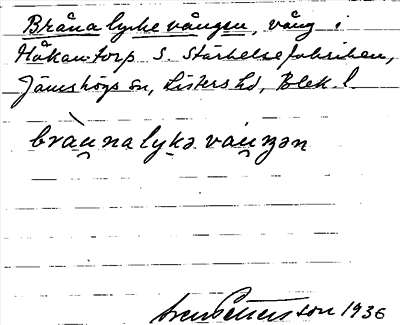 Bråna lyckevången, vång i
Håkantorp S. Stärkelsefabriken,
Jämshögs sn, Listers hd, Blek. l.
bràu̯nalyka vàu̯ŋən
Sven Pettersson 1936